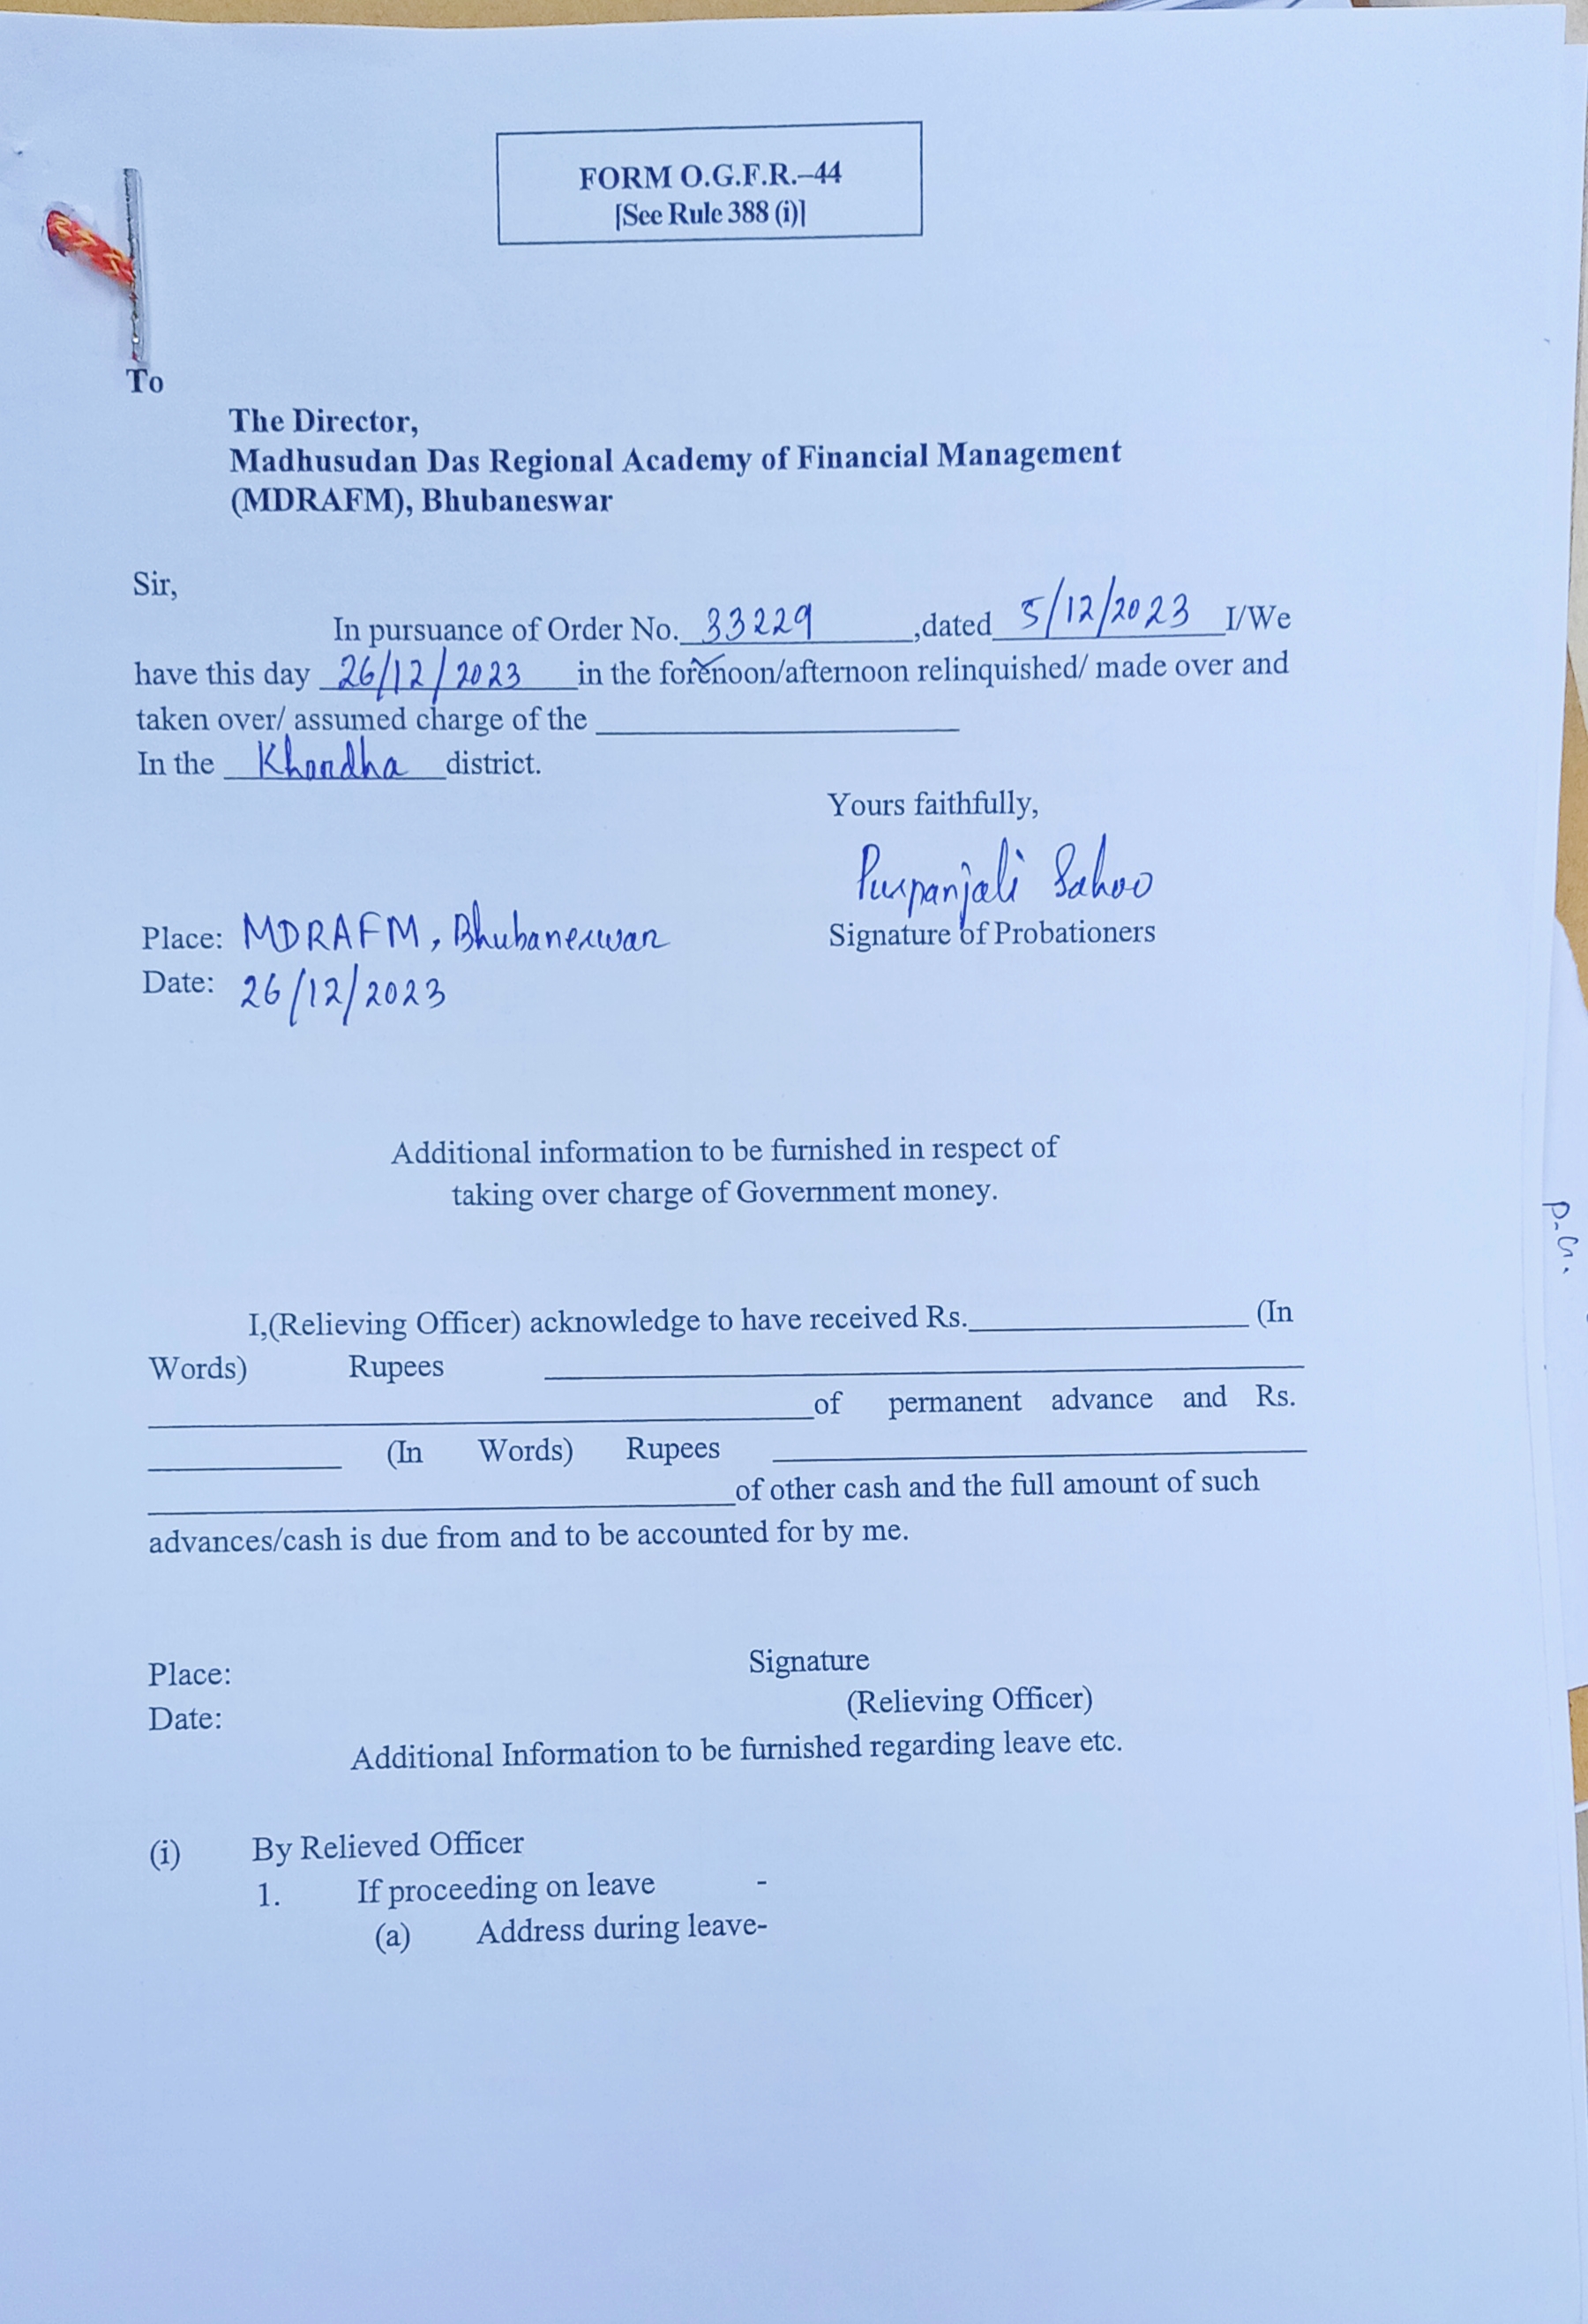 FORM O.G.F.R.–44
[See Rule 388 (i)]
To
The Director,
Madhusudan Das Regional Academy of Financial Management
(MDRAFM), Bhubaneswar
Sir,
In pursuance of Order No. 33229 ,dated 5/12/2023 I/We
have this day 26/12/2023 in the forenoon/afternoon relinquished/ made over and
taken over/ assumed charge of the
In the Khordha district.
Yours faithfully,
Puspanjali Sahoo
Signature of Probationers
Place: MDRAFM, Bhubaneswar
Date: 26/12/2023
Additional information to be furnished in respect of
taking over charge of Government money.
I,(Relieving Officer) acknowledge to have received Rs. (In
Words) Rupees
of permanent advance and Rs.
(In Words) Rupees
of other cash and the full amount of such
advances/cash is due from and to be accounted for by me.
Place: Signature
Date: (Relieving Officer)
Additional Information to be furnished regarding leave etc.
(i) By Relieved Officer
1. If proceeding on leave -
(a) Address during leave-